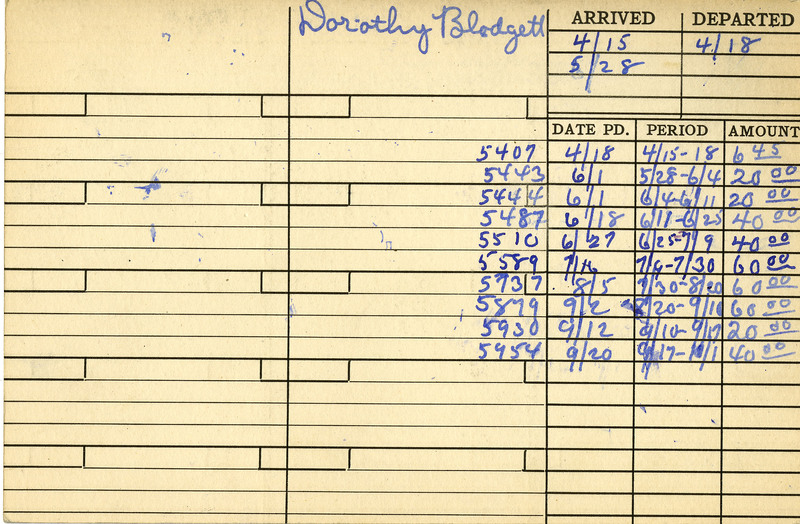 Dorothy Blodgett
ARRIVED DEPARTED
4/15 4/18
5/28
DATE PD. PERIOD AMOUNT
5407 4/18 4/15-18 6 45
5443 6/1 5/28-6/4 20 00
5444 6/1 6/4-6/11 20 00
5487 6/18 6/11-6/25 40 00
5510 6/27 6/25-7/9 40 00
5589 7/16 7/9-7/30 60 00
5737 8/5 7/30-8/20 60 00
5879 9/2 8/20-9/10 60 00
5930 9/12 9/10-9/17 20 00
5954 9/20 9/17-10/1 40 00